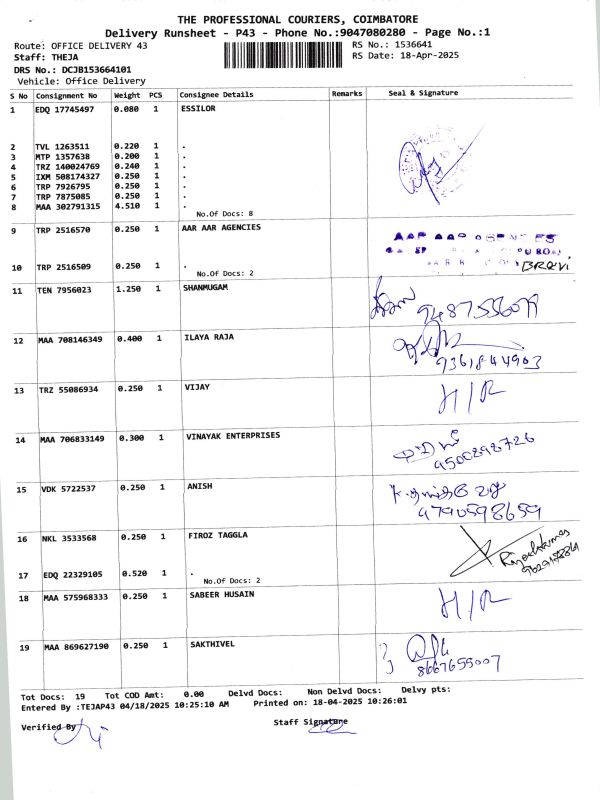 THE PROFESSIONAL COURIERS, COIMBATORE
Delivery Runsheet - P43 - Phone No.:9047080280 - Page No.:1
Route: OFFICE DELIVERY 43
RS No.: 1536641
Staff: THEJA
RS Date: 18-Apr-2025
DRS No.: DCJB153664101
Vehicle: Office Delivery
S No Consignment No Weight PCS Consignee Details Remarks Seal & Signature
1 EDQ 17745497 0.080 1 ESSILOR
2 TVL 1263511 0.220 1 .
3 MTP 1357638 0.200 1 .
4 TRZ 140024769 0.240 1 .
5 IXM 508174327 0.250 1 .
6 TRP 7926795 0.250 1 .
7 TRP 7875085 0.250 1 .
8 MAA 302791315 4.510 1 .
No.Of Docs: 8
9 TRP 2516570 0.250 1 AAR AAR AGENCIES
10 TRP 2516509 0.250 1 .
No.Of Docs: 2
11 TEN 7956023 1.250 1 SHANMUGAM
12 MAA 708146349 0.400 1 ILAYA RAJA
9361844903
13 TRZ 55086934 0.250 1 VIJAY H/R
14 MAA 706833149 0.300 1 VINAYAK ENTERPRISES
9500898726
15 VDK 5722537 0.250 1 ANISH
9790598659
16 NKL 3533568 0.250 1 FIROZ TAGGLA
17 EDQ 22329105 0.520 1 .
No.Of Docs: 2
18 MAA 575968333 0.250 1 SABEER HUSAIN H/R
19 MAA 869627190 0.250 1 SAKTHIVEL
8667655007
Tot Docs: 19 Tot COD Amt: 0.00 Delvd Docs: Non Delvd Docs: Delvy pts:
Entered By :TEJAP43 04/18/2025 10:25:10 AM Printed on: 18-04-2025 10:26:01
Verified By Staff Signature